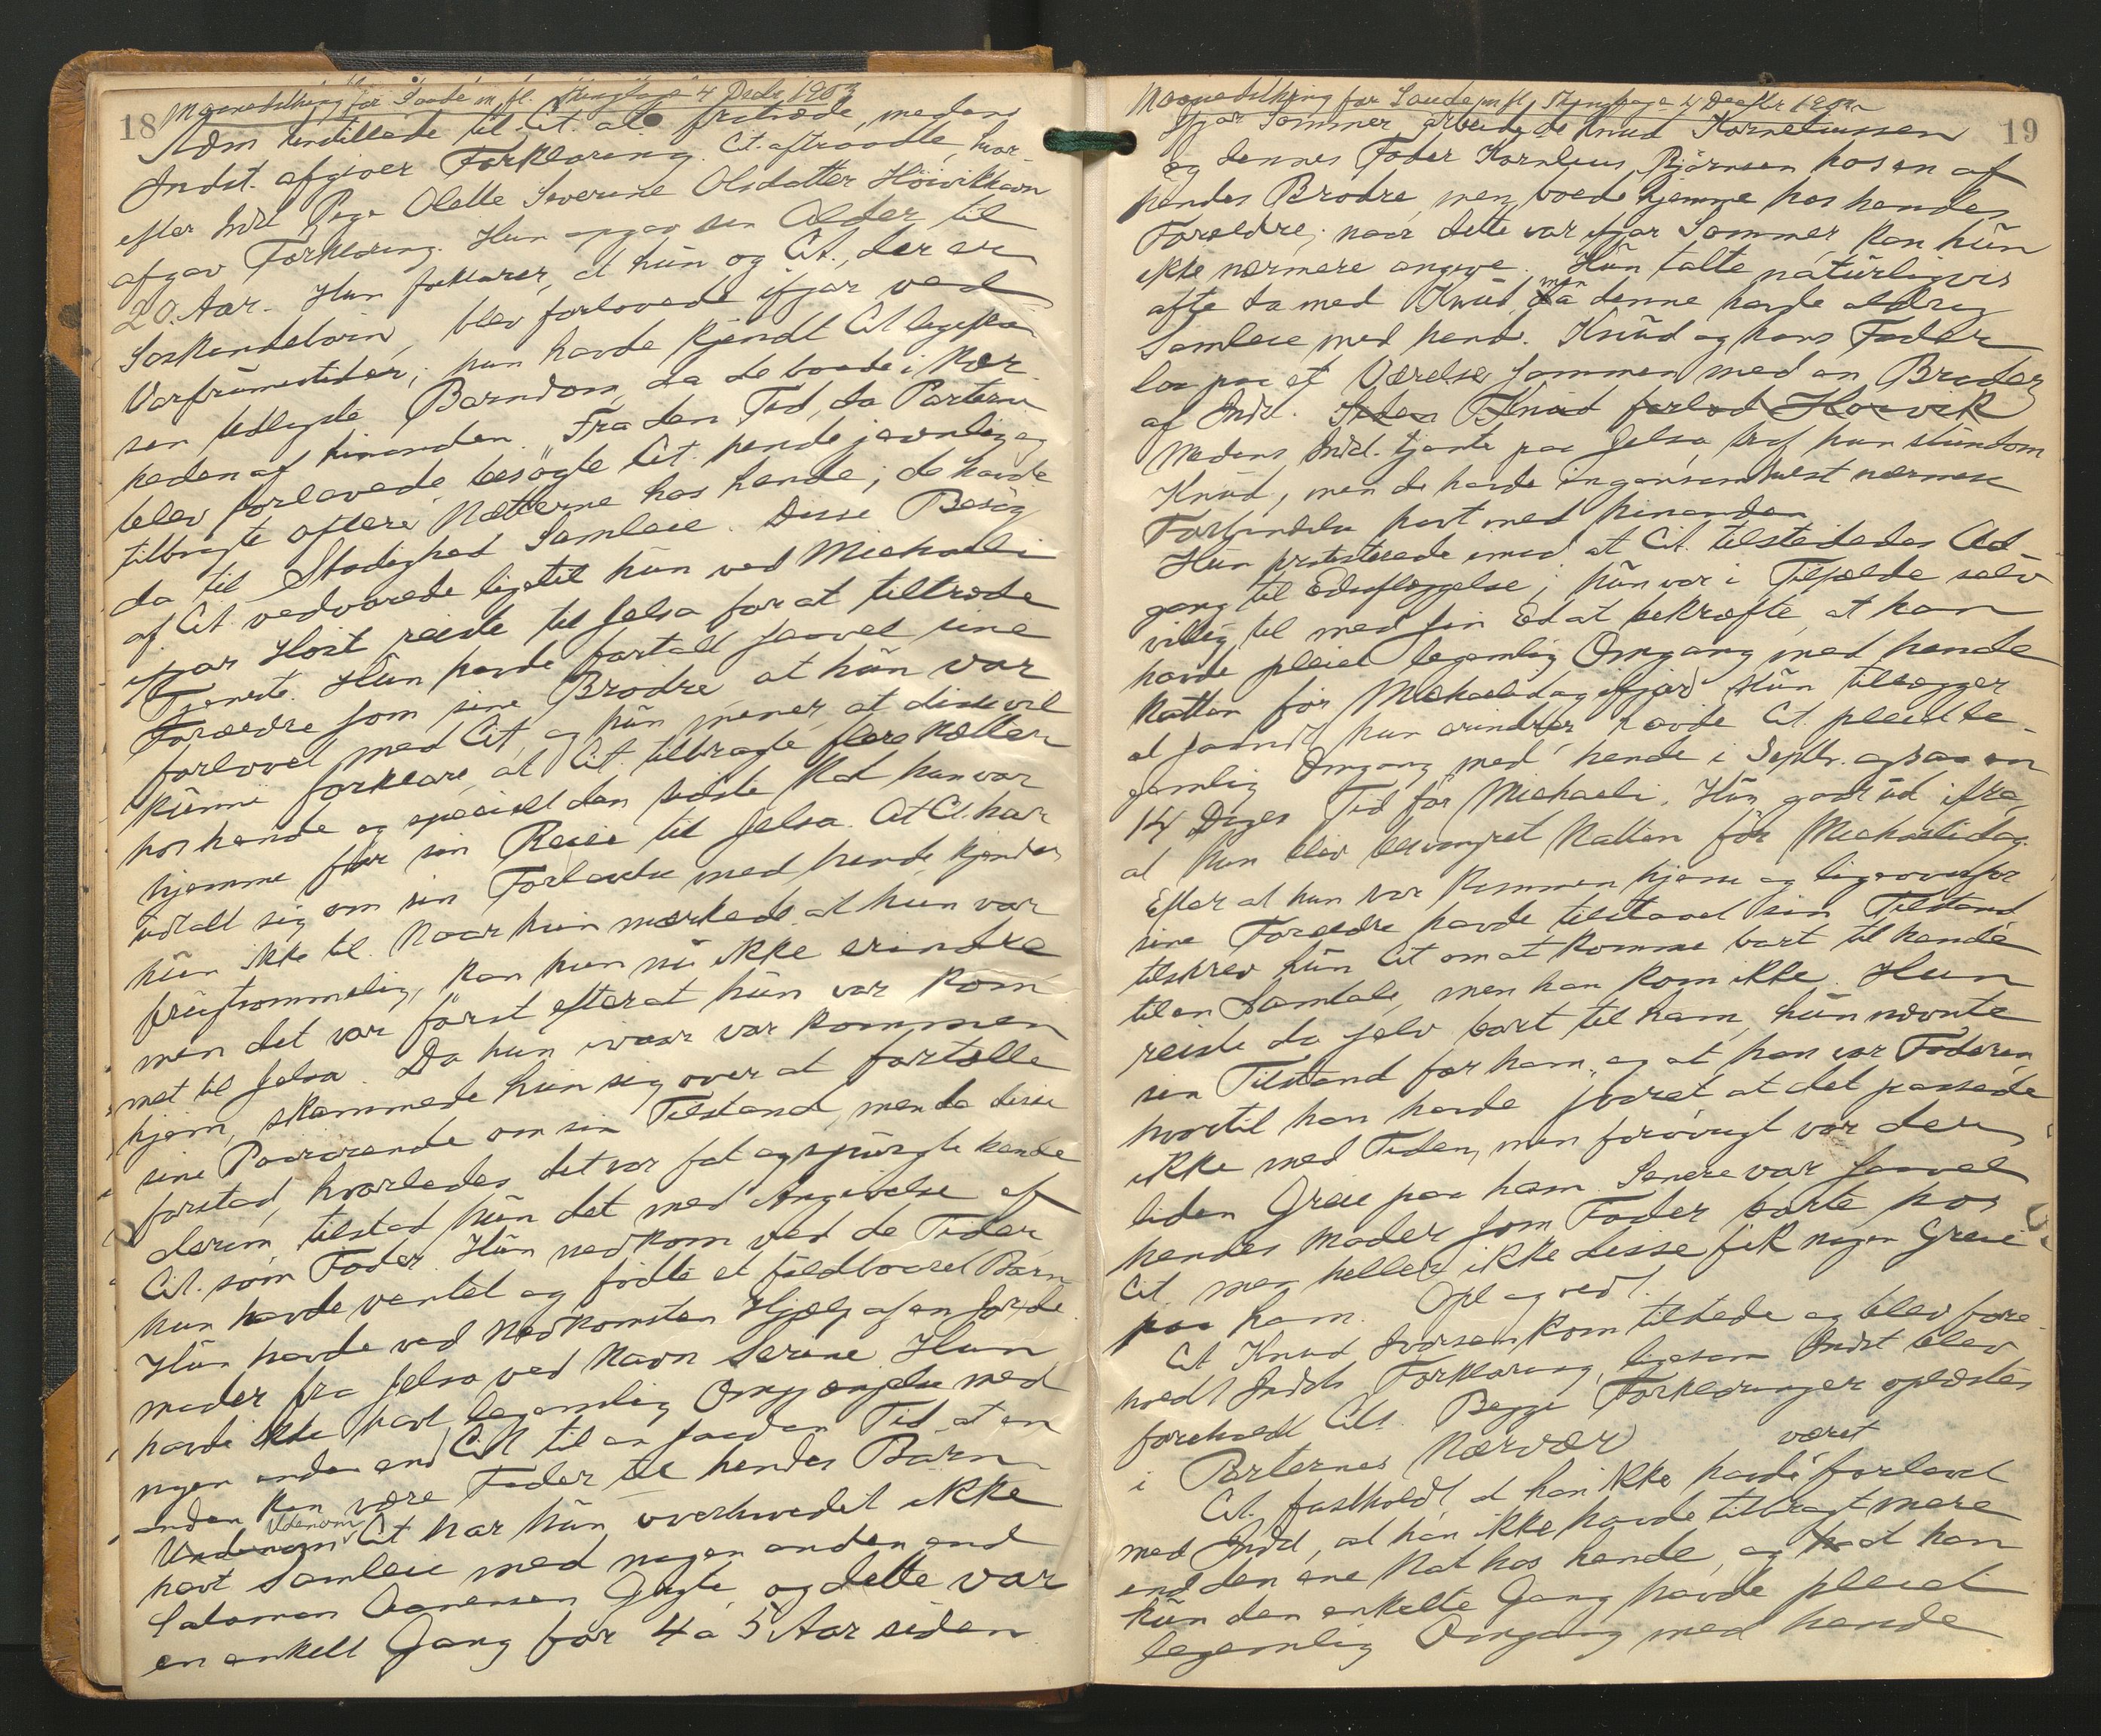 18
Maanedsthing for Saude m. fl. Thinglag 4 Decbr 1903
Adm henstillede til Cit. at fratræde, medens
Indst. afgiver Forklaring. Cit. aftraadte, hvor-
efter Indst Pige Olette Severine Olsdatter Høivikhavn
afgav Forklaring. Hun opgav sin Alder til
20 Aar. Hun forklarer, at hun og Cit., der er
Søskendebørn, blev forlovede ifjor ved
Vaarfrumestider; hun havde kjendt Cit ligefra
sin tidligste Barndom, da de boede i Nær-
heden af hinanden. Fra den Tid, da Parterne
blev forlovede besøgte Cit. hende jevnlig og
tilbragte oftere Nætterne hos hende; de havde
da til Stadighed Samleie. Disse Besøg
af Cit vedvarede ligetil hun ved Michaeli
ifjor Høst reiste til Jelsa for at tiltræde
Tjeneste. Hun havde fortalt saavel sine
Forældre som sine Brødre at hun var
forlovet med Cit, og hun mener, at disse vil
kunne forklare, at Cit. tilbragte flere Nætter
hos hende og specielt den sidste Nat hun var
hjemme før sin Reise til Jelsa. At Cit. har
udtalt sig om sin Forlovelse med hende, kjender
hun ikke til. Naar hun mærkede at hun var
frugtsommelig, kan hun nu ikke erindre
men det var først efterat hun var kom-
met til Jelsa. Da hun ivaar var kommen
hjem, skammede hun sig over at fortælle
sine Paarørende om sin Tilstand, men da disse
forstod, hvorledes det var fat og spurgte hende
derom, tilstod hun det med Angivelse af
Cit. som Fader. Hun nedkom ved de Tider
hun havde ventet og fødte et fuldbaaret Barn
Hun havde ved Nedkomsten Hjælp af en Jorde-
moder fra Jelsa ved Navn Serine. Hun
havde ikke havt legemlig Omgjængelse med
nogen anden end Cit til en saadan Tid at en
anden kan være Fader til hendes Barn
Udenom Cit har hun overhovedet ikke
havt Samleie med nogen anden end
Salomon Aanensen og dette var
en enkelt Gang for 4 a 5 Aar siden
19
Maanedsthing for Saude m. fl. Thinglag 4 Decbr 1903
Ifjor Sommer arbeidede Knud Korneliussen
og dennes Fader Kornlius Bjørnsen hos en af
hendes Brødre, men boede hjemme hos hendes
Forældre; naar dette var ifjor Sommer kan hun
ikke nærmere angive. Hun talte naturligvis
ofte da med Knud, men denne havde aldrig
Samleie med hend. Knud og hans Fader
laa paa et Værelse sammen med en Broder
af Indst. Siden Knud forlod Høivik
Medens Indst. tjente paa Jelsa, traf hun stundom
Knud, men de havde ingensomhelst nærmere
Forbindelse havt med hinanden
Hun protesterede imod at Cit. tilstededes Ad-
gang til Edsaflæggelse; hun var i Tilfælde selv
villig til med sin Ed at bekræfte, at han
havde pleiet legemlig Omgang med hende
Natten før Michaelidag ifjor. Hun tillægger
at saavidt hun erindrer, havde Cit. pleiet le-
gemlig Omgang med hende i Septbr. ogsaa en
14 Dages Tid før Michaeli. Hun gaar ud ifra,
at hun blev besvangret Natten før Michaelidag.
Efter at hun var kommen hjem og ligeoverfor
sine Forældre havde tilstaaet sin Tilstand
tilskrev hun Cit om at komme bort til hende
til en Samtale, men han kom ikke. Hun
reiste da selv bort til ham, hun nævnte
sin Tilstand for ham, og at han var Faderen,
hvortil han havde svaret at det passede
ikke med Tiden, men forøvrigt var der
liden Greie paa ham. Senere var saavel
hendes Moder som Fader borte hos
Cit, men heller ikke disse fik nogen Greie
paa ham. Opl og vedt.
Cit Knud Ivarsen kom tilstede og blev fore-
holdt Indsts Forklaring, ligesom Indst blev
foreholdt Cits. Begge Forklaringer oplæstes
i Parternes Nærvær
Cit. fastholdt at han ikke havde været forlovet
med Indst, at han ikke havde tilbragt mere
end den ene Nat hos hende, og at han
kun den enkelte Gang havde pleiet
legemlig Omgang med hende